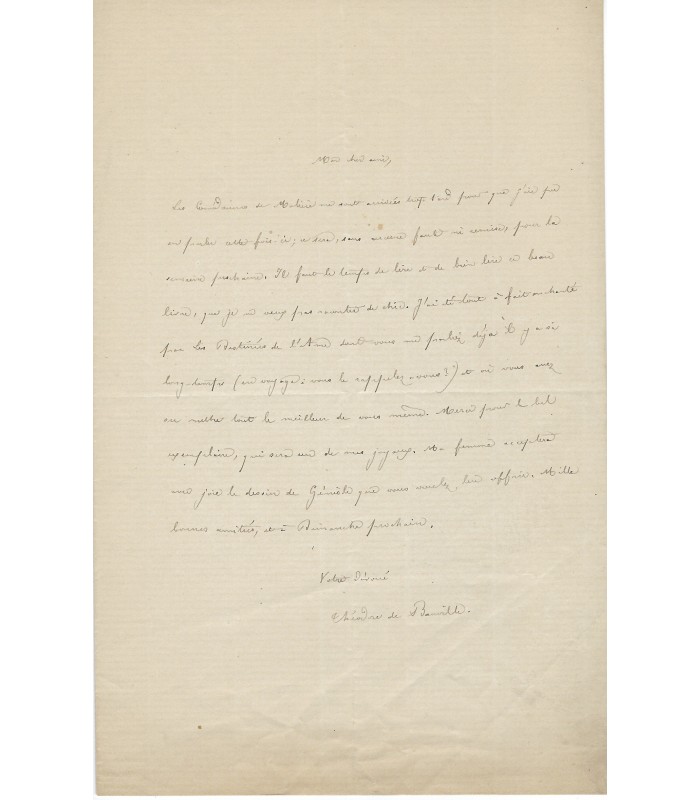 Mon cher ami,
Les Comédiennes de Molière me sont arrivées trop tard pour que j'aie pu
en parler cette fois-ci; ce sera, sans aucune faute ni remise, pour la
semaine prochaine. Il faut le temps de lire et de bien lire ce beau
livre, que je ne veux pas de chic. J'ai été tout à fait enchanté
par les de l'Ame dont vous me parliez déjà il y a si
longtemps (en voyage: vous le rappelez-vous?) et où vous avez
su mettre tout le meilleur de vous même. Merci pour le bel
exemplaire, qui sera un de mes joyaux. Ma femme acceptera
avec joie le dessin de que vous voulez lui offrir. Mille
bonnes amitiés, et à Dimanche prochain.
Votre dévoué
Théodore de Banville.